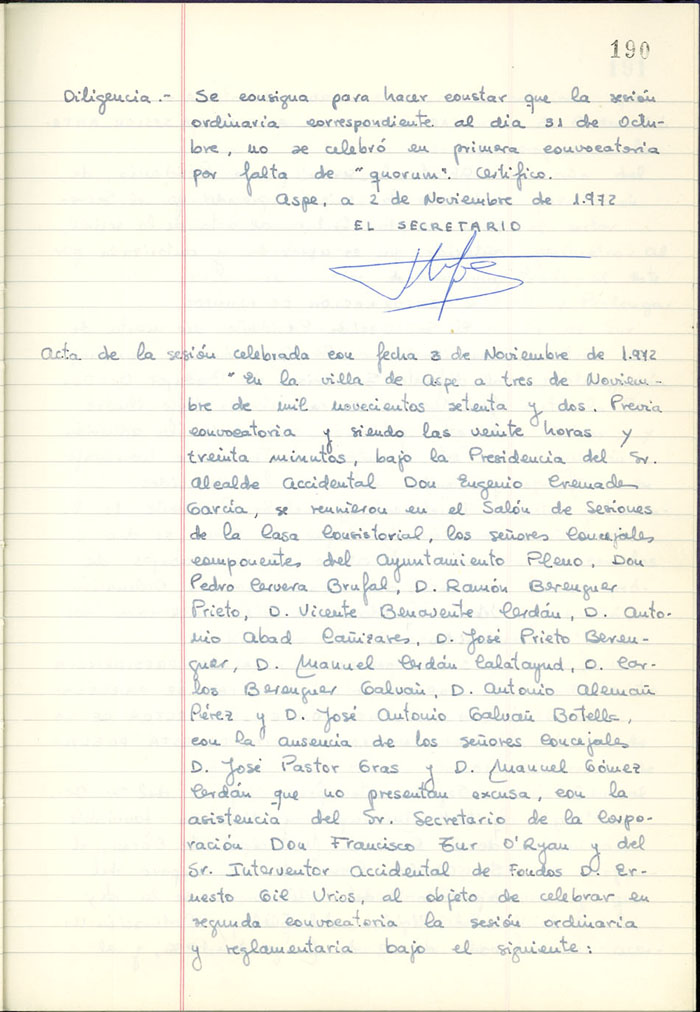 190
Diligencia.- Se consigna para hacer constar que la sesión
ordinaria correspondiente al dia 31 de Octu-
bre, no se celebró en primera convocatoria
por falta de "quorum". Certifico.
Aspe, a 2 de Noviembre de 1.972
EL SECRETARIO
Acta de la sesión celebrada con fecha 3 de Noviembre de 1.972
"En la villa de Aspe a tres de Noviem-
bre de mil novecientos setenta y dos. Previa
convocatoria y siendo las veinte horas y
treinta minutos, bajo la Presidencia del Sr.
Alcalde Accidental Don Eugenio Cremades
García, se reunieron en el Salón de Sesiones
de la Casa Consistorial, los señores Concejales
componentes del Ayuntamiento Pleno, Don
Pedro Cervera Brufal, D. Ramón Berenguer
Prieto, D. Vicente Benavente Cerdán, D. Anto-
nio Abad Cañizares, D. José Prieto Beren-
guer, D. Manuel Cerdán Calatayud, D. Car-
los Berenguer Galvañ, D. Antonio Alemañ
Pérez y D. José Antonio Galvañ Botella,
con la ausencia de los señores Concejales
D. José Pastor Gras y D. Manuel Gómez
Cerdán que no presentan excusa, con la
asistencia del Sr. Secretario de la Corpo-
ración Don Francisco Tur O'Ryan y del
Sr. Interventor Accidental de Fondos D. Er-
nesto Gil Urios, al objeto de celebrar en
segunda convocatoria la sesión ordinaria
y reglamentaria bajo el siguiente: